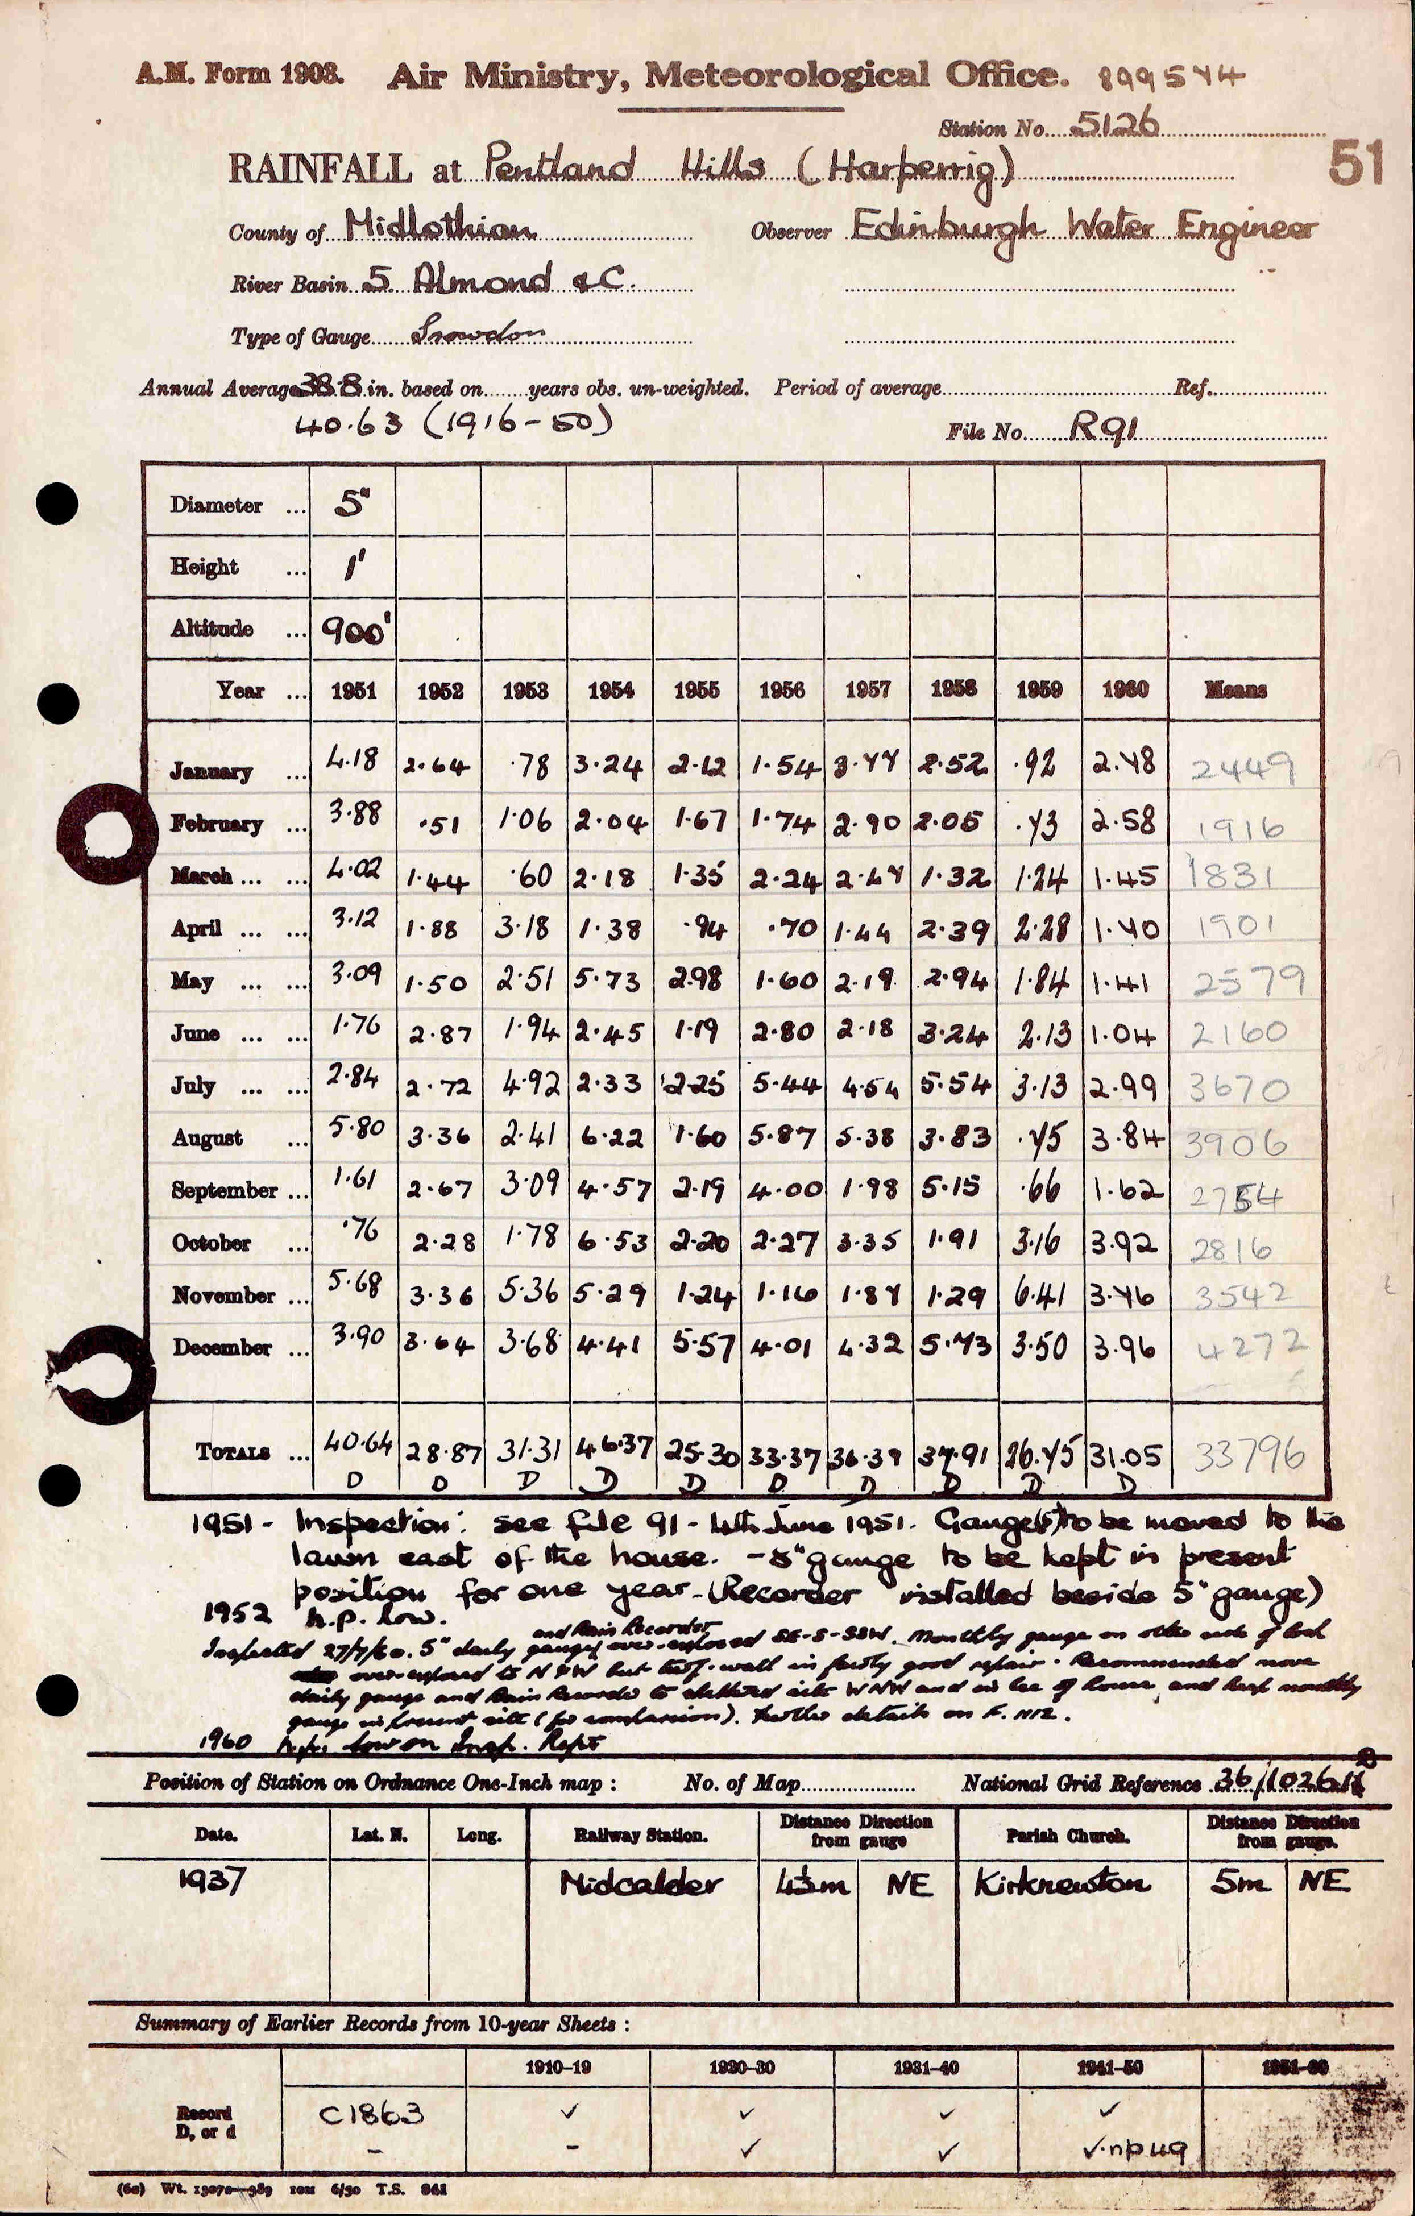 A.M. Form 1908. Air Ministry, Meteorological Office. 899574
Station No. 5126
51
RAINFALL at Pentland Hills (Harperrig)
County of Midlothian Observer Edinburgh Water Engineer
River Basin 5 Almond &C.
Type of Gauge Snowdon
Annual Average 38.8 in. based on years obs. un-weighted. Period of average Ref.
40.63 (1916-50)
File No. R91
Diameter ... 5"
Height ... 1'
Altitude ... 900'
Year ... 1951 1952 1953 1954 1955 1956 1957 1958 1959 1960 Means
January ... 4.18 2.64 .78 3.24 2.12 1.54 3.77 2.52 .92 2.78 2449
February ... 3.88 .51 1.06 2.04 1.67 1.74 2.90 2.05 .73 2.58 1916
March ... ... 4.02 1.44 .60 2.18 1.35 2.24 2.47 1.32 1.24 1.45 1831
April ... ... 3.12 1.88 3.18 1.38 .94 .70 1.44 2.39 2.28 1.70 1901
May ... ... 3.09 1.50 2.51 5.73 2.98 1.60 2.19 2.94 1.84 1.41 2579
June ... ... 1.76 2.87 1.94 2.45 1.19 2.80 2.18 3.24 2.13 1.04 2160
July ... ... 2.84 2.72 4.92 2.33 2.25 5.44 4.54 5.54 3.13 2.99 3670
August ... 5.80 3.36 2.41 6.22 1.60 5.87 5.38 3.83 .75 3.84 3906
September ... 1.61 2.67 3.09 4.57 2.19 4.00 1.98 5.15 .66 1.62 2754
October ... .76 2.28 1.78 6.53 2.20 2.27 3.35 1.91 3.16 3.92 2816
November ... 5.68 3.36 5.36 5.29 1.24 1.16 1.87 1.29 6.41 3.76 3542
December ... 3.90 3.64 3.68 4.41 5.57 4.01 4.32 5.73 3.50 3.96 4272
TOTALS ... 40.64 28.87 31.31 46.37 25.30 33.37 36.39 37.91 26.75 31.05 33796
D D D D D D D D D D
1951 - Inspection: see file 91 - 4th June 1951. Gauge(5") to be moved to the
lawn east of the house. - 8" gauge to be kept in present
position for one year. (Recorder installed beside 5" gauge)
1952 n.p. low.
and Rain Recorder
Inspected 27/7/60. 5" daily gauge over-exposed SE-S-SSW. Monthly gauge on other side of
over-exposed to N & W but turf-wall in fairly good repair. Recommended move
daily gauge and Rain Recorder to sheltered site WNW and in lee of house, and keep monthly
gauge in present site (for comparison). Further details on F. 1112.
1960 n.p. low on Insp. Rept
Position of Station on Ordnance One-Inch map : No. of Map National Grid Reference 36/1026
Date. Lat. N. Long. Railway Station. Distance Direction from gauge Parish Church. Distance Direction from gauge.
1937 Midcalder 4½m NE Kirknewton 5m NE
Summary of Earlier Records from 10-year Sheets :
1910–19 1920–30 1931–40 1941–50 1951–60
Record C1863 ✓ ✓ ✓ ✓
D, or d - - ✓ ✓ ✓.np 49
(6a) Wt. 13070—989 10M 6/50 T.S. 841